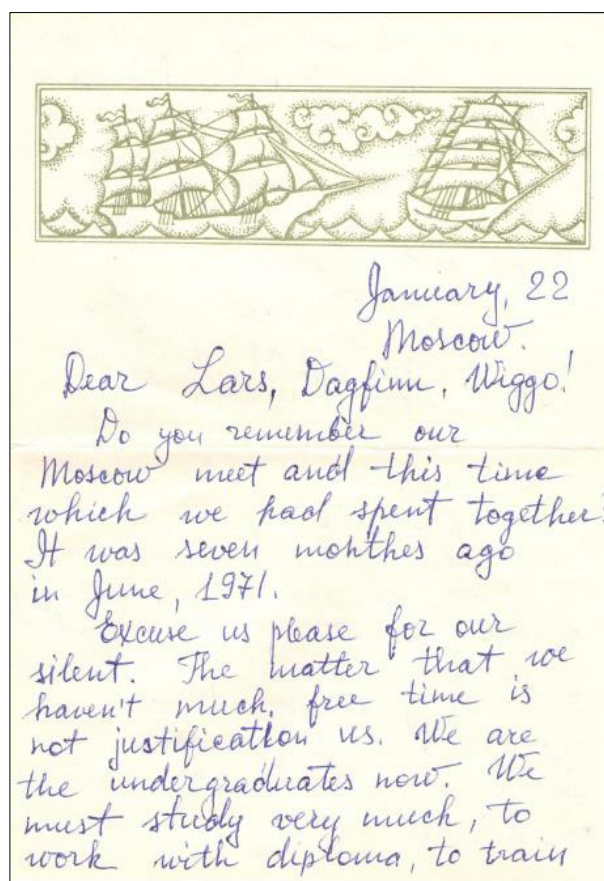 January, 22
Moscow.
Dear Lars, Dagfinn, Wiggo!
Do you remember our
Moscow meet and this time
which we had spent together?
It was seven monthes ago
in June, 1971.
Excuse us please for our
silent. The matter that we
haven't much, free time is
not justification us. We are
the undergraduates now. We
must study very much, to
work with diploma, to train